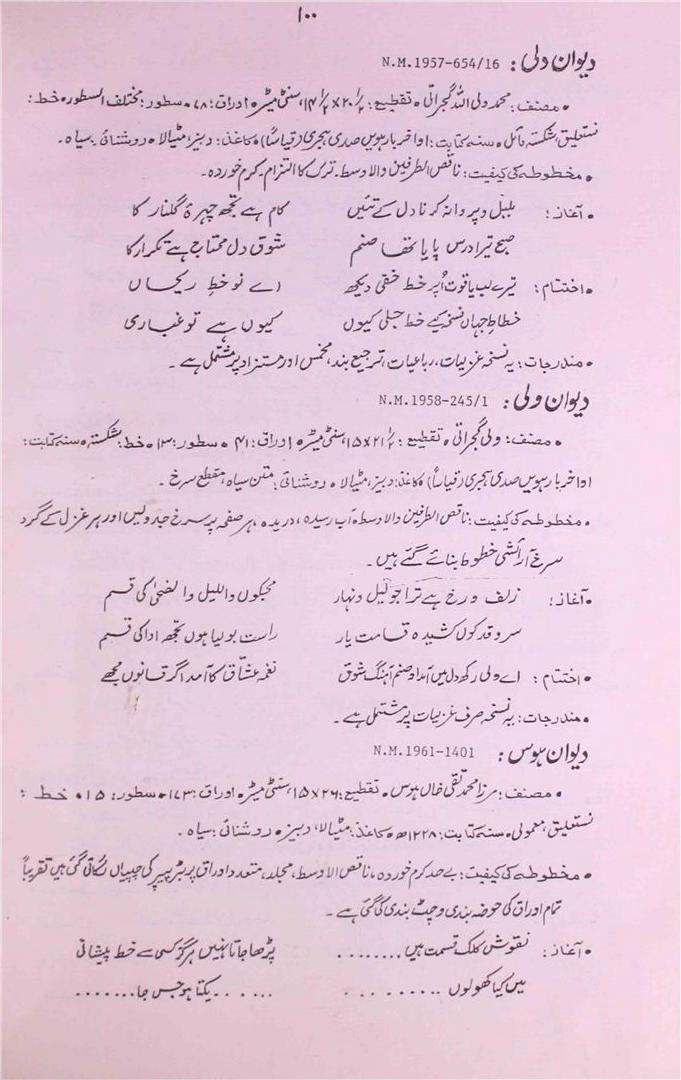 ۱۰۰
دیوان ولی : N.M.1957-654/16
• مصنف : محمد ولی اللہ گجراتی • تقطیع : ۲۰½ × ۱۴½، سنٹی میٹر • اوراق : ۷۸ • سطور : مختلف السطور • خط :
نستعلیق، شکستہ مائل • سنہ کتابت : اواخر بارہویں صدی ہجری (قیاساً) • کاغذ : دبیز، مٹیالا • روشنائی : سیاہ ۔
• مخطوطہ کی کیفیت : ناقص الطرفین والاوسط ۔ ترک کا التزام ۔ کرم خوردہ ۔
• آغاز : بلبل و پروانہ کرنا دل کے تئیں کام ہے تجھ چہرۂ گلنار کا
صبح تیرا درس پایا تھا صنم شوق دل محتاج ہے تکرار کا
• اختتام : تیرے لب یاقوت اُپر خط خفی دیکھ اے نو خطِ ریحاں
خطاطِ جہاں نسخ کیے خط جلی کیوں کیوں ہے تو غباری
• مندرجات : یہ نسخہ غزلیات، رباعیات، ترجیع بند، مخمس اور مستزاد پر مشتمل ہے ۔
دیوان ولی : N.M.1958-245/1
• مصنف : ولی گجراتی • تقطیع : ۲۱½ × ۱۵، سنٹی میٹر • اوراق : ۴۱ • سطور : ۱۳ • خط : شکستہ • سنہ کتابت :
اواخر بارہویں صدی ہجری (قیاساً) • کاغذ : دبیز، مٹیالا • روشنائی : متن سیاہ، مقطع سرخ ۔
• مخطوطہ کی کیفیت : ناقص الطرفین والاوسط، آب رسیدہ، دریدہ، ہر صفحہ پر سرخ جدولیں اور ہر غزل کے گرد
سرخ آرائشی خطوط بنائے گئے ہیں ۔
• آغاز : زلف و رخ ہے ترا جو لیل و نہار مجکوں واللیل والضحیٰ کی قسم
سرو قد کوں کشیدہ قامت یار راست بولیا ہوں تجھ ادا کی قسم
• اختتام : اے ولی رکھ دل میں آمد او صنم آہنگ شوق نغمۂ عشّاق کا آمد اگر قانوں مجھے
• مندرجات : یہ نسخہ صرف غزلیات پر مشتمل ہے ۔
دیوان ہوس : N.M.1961-1401
• مصنف : مرزا محمد تقی خاں ہوس • تقطیع : ۲۶ × ۱۵، سنٹی میٹر • اوراق : ۱۷۳ • سطور : ۱۵ • خط :
نستعلیق، معمولی • سنہ کتابت : ۱۲۲۸ھ • کاغذ : مٹیالا، دبیز • روشنائی : سیاہ ۔
• مخطوطہ کی کیفیت : بے حد کرم خوردہ، ناقص الاوسط، مجلد، متعدد اوراق پر بٹر پیپر کی چیپیاں لگائی گئی ہیں تقریباً
تمام اوراق کی حوضہ بندی و چٹ بندی کی گئی ہے ۔
• آغاز : نقوش کلک قسمت ہیں ........ پڑھا جاتا نہیں ہرگز کسی سے خط پیشانی
میں کیا کھولوں .......... ...... یکتا ہو جس جا .......